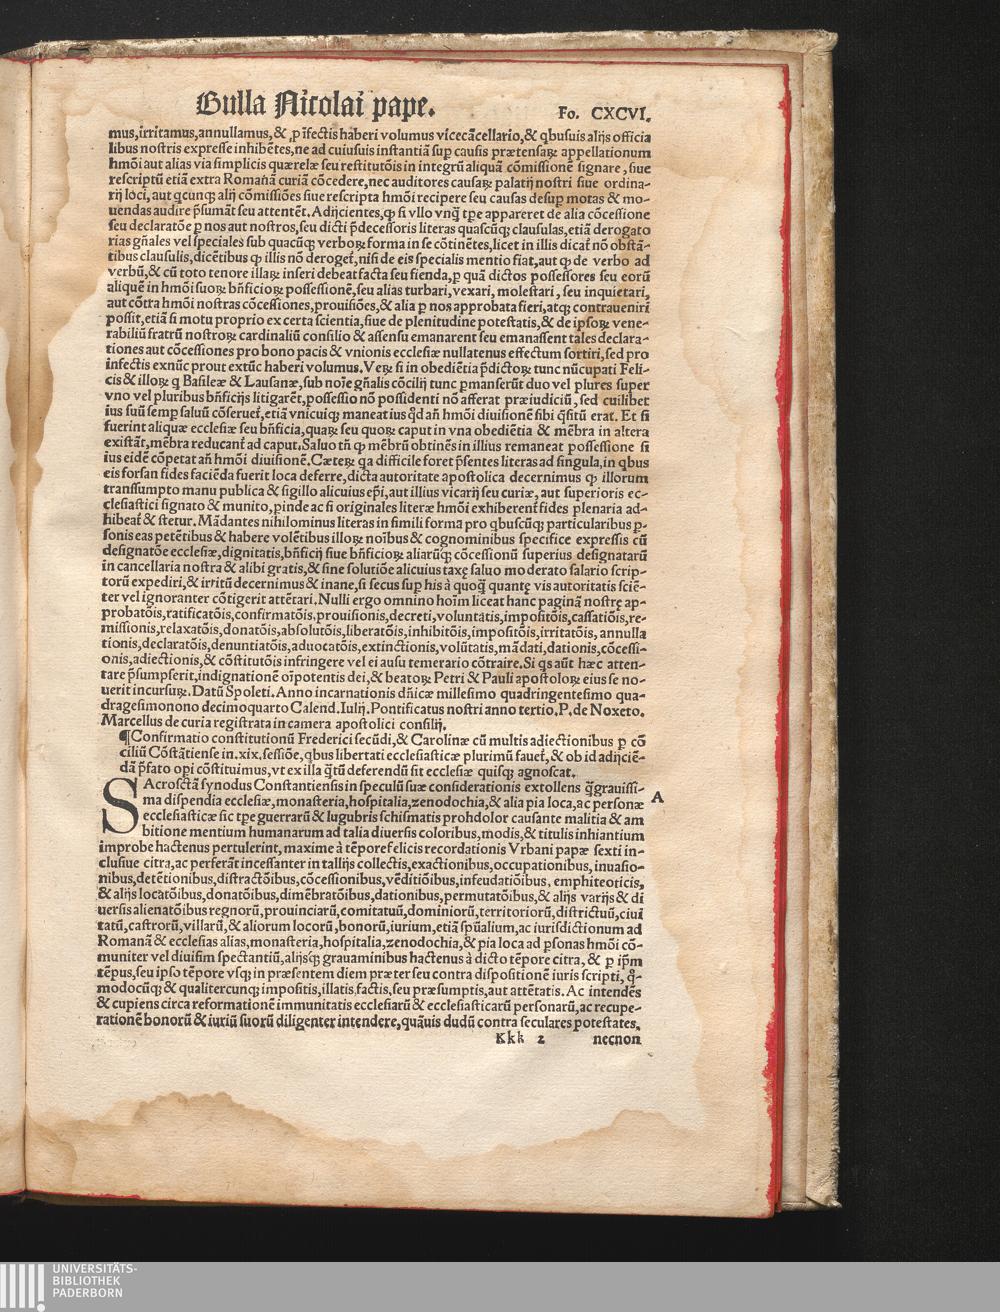 Bulla Nicolai pape.
Fo. CXCVI.
mus,irritamus,annullamus,& ,p ĩfectis haberi volumus vicecãcellario,& qbusuis alijs officia
libus nostris expresse inhibẽtes,ne ad cuiusuis instantiã sup causis prætensaꝝ appellationum
hmõi aut alias via simplicis quærelæ seu restitutõis in integrũ aliquã cõmissionẽ signare, siue
rescriptũ etiã extra Romanã curiã cõcedere,nec auditores causaꝝ palatij nostri siue ordina-
rij loci, aut qcunqꝫ alij cõmissiões siue rescripta hmõi recipere seu causas desup motas & mo-
uendas audire p̃sumãt seu attentẽt. Adijcientes,ꝙ si vllo vnq̃ tꝑe appareret de alia cõcessione
seu declaratõe ꝑ nos aut nostros,seu dicti p̃decessoris literas quascũqꝫ clausulas,etiã derogato
rias gñales vel speciales sub quacũqꝫ verboꝝ forma in se cõtinẽtes,licet in illis dicat̃ nõ obstã-
tibus clausulis,dicẽtibus ꝙ illis nõ deroget̃,nisi de eis specialis mentio fiat,aut ꝙ de verbo ad
verbũ,& cũ toto tenore illaꝝ inseri debeat facta seu fienda,ꝑ quã dictos possessores seu eorũ
aliquẽ in hmõi suoꝝ bñficioꝝ possessionẽ,seu alias turbari, vexari, molestari, seu inquietari,
aut cõtra hmõi nostras cõcessiones,prouisiões,& alia ꝑ nos approbata fieri,atqꝫ contraueniri
possit,etiã si motu proprio ex certa scientia,siue de plenitudine potestatis,& de ipsoꝝ vene-
rabiliũ fratrũ nostroꝝ cardinaliũ consilio & assensu emanarent seu emanassent tales declara-
tiones aut cõcessiones pro bono pacis & vnionis ecclesiæ nullatenus effectum sortiri,sed pro
infectis exnũc prout extũc haberi volumus. Veꝝ si in obediẽtia p̃dictoꝝ tunc nũcupati Feli-
cis & illoꝝ q Basileæ & Lausanæ,sub noĩe gñalis cõcilij tunc ꝑmanserũt duo vel plures super
vno vel pluribus bñficijs litigarẽt,possessio nõ possidenti nõ afferat præiudiciũ, sed cuilibet
ius suũ semꝑ saluũ cõseruet̃,etiã vnicuiqꝫ maneat ius qd̃ añ hmõi diuisionẽ sibi q̃sitũ erat. Et si
fuerint aliquæ ecclesiæ seu bñficia, quaꝝ seu quoꝝ caput in vna obediẽtia & mẽbra in altera
existãt,mẽbra reducant̃ ad caput. Saluo tñ ꝙ mẽbrũ obtinẽs in illius remaneat possessione si
ius eidẽ cõpetat añ hmõi diuisionẽ. Cæteꝝ qa difficile foret p̃sentes literas ad singula,in qbus
eis forsan fides faciẽda fuerit loca deferre, dicta autoritate apostolica decernimus ꝙ illorum
transsumpto manu publica & sigillo alicuius ep̃i,aut illius vicarij seu curiæ, aut superioris ec-
clesiastici signato & munito,ꝑinde ac si originales literæ hmõi exhiberent̃ fides plenaria ad-
hibeat̃ & stetur. Mãdantes nihilominus literas in simili forma pro qbuscũqꝫ particularibus ꝑ-
sonis eas petẽtibus & habere volẽtibus illoꝝ noĩbus & cognominibus specifice expressis cũ
designatõe ecclesiæ,dignitatis,bñficij siue bñficioꝝ aliarũqꝫ cõcessionũ superius designatarũ
in cancellaria nostra & alibi gratis,& sine solutiõe alicuius taxę saluo moderato salario scrip-
torũ expediri,& irritũ decernimus & inane,si secus sup his à quoq̃ quantę vis autoritatis sciẽ-
ter vel ignoranter cõtigerit attẽtari. Nulli ergo omnino hoĩm liceat hanc paginã nostrę ap-
probatõis,ratificatõis,confirmatõis,prouisionis,decreti,voluntatis,impositõis,cassatiõis,re-
missionis,relaxatõis,donatõis,absolutõis,liberatõis,inhibitõis,impositõis,irritatõis, annulla
tionis,declaratõis,denuntiatõis,aduocatõis,extinctionis,volũtatis,mãdati,dationis,cõcessi-
onis,adiectionis,& cõstitutõis infringere vel ei ausu temerario cõtraire. Si qs aũt hæc atten-
tare p̃sumpserit,indignationẽ oĩpotentis dei,& beatoꝝ Petri & Pauli apostoloꝝ eius se no-
uerit incursuꝝ. Datũ Spoleti. Anno incarnationis dñicæ millesimo quadringentesimo qua-
dragesimonono decimoquarto Calend. Iulij. Pontificatus nostri anno tertio. P. de Noxeto.
Marcellus de curia registrata in camera apostolici consilij.
¶Confirmatio constitutionũ Frederici secũdi,& Carolinæ cũ multis adiectionibus ꝑ cõ
ciliũ Cõstãtiense in.xix.sessiõe,qbus libertati ecclesiasticæ plurimũ fauet̃,& ob id adijciẽ-
dã p̃fato opi cõstituimus,vt ex illa q̃tũ deferendũ sit ecclesiæ quisqꝫ agnoscat.
SAcrosctã synodus Constantiensis in speculũ suæ considerationis extollens q̃grauissi-
ma dispendia ecclesiæ,monasteria,hospitalia,zenodochia,& alia pia loca,ac personæ
A
ecclesiasticæ sic tꝑe guerrarũ & lugubris schismatis prohdolor causante malitia & am
bitione mentium humanarum ad talia diuersis coloribus,modis,& titulis inhiantium
improbe hactenus pertulerint, maxime à tẽpore felicis recordationis Vrbani papæ sexti in-
clusiue citra,ac perferãt incessanter in tallijs collectis,exactionibus,occupationibus, inuasio-
nibus,detẽtionibus,distractõibus,cõcessionibus,vẽditiõibus,infeudatiõibus, emphiteoticis,
& alijs locatõibus,donatõibus,dimẽbratõibus,dationibus,permutatõibus,& alijs varijs & di
uersis alienatõibus regnorũ,prouinciarũ,comitatuũ,dominiorũ,territoriorũ,districtuũ,ciui
tatũ,castrorũ,villarũ,& aliorum locorũ,bonorũ,iurium,etiã spũalium,ac iurisdictionum ad
Romanã & ecclesias alias,monasteria,hospitalia,zenodochia,& pia loca ad ꝑsonas hmõi cõ-
muniter vel diuisim spectantiũ,alijsqꝫ grauaminibus hactenus à dicto tẽpore citra, & ꝑ ip̃m
tẽpus,seu ipso tẽpore vsqꝫ in præsentem diem præter seu contra dispositionẽ iuris scripti, q̃-
modocũqꝫ & qualitercunqꝫ impositis,illatis,factis,seu præsumptis,aut attẽtatis. Ac intendẽs
& cupiens circa reformationẽ immunitatis ecclesiarũ & ecclesiasticarũ personarũ,ac recupe-
rationẽ bonorũ & iuriũ suorũ diligenter intendere,quãuis dudũ contra seculares potestates,
Kkk 2 necnon
UNIVERSITÄTS-
BIBLIOTHEK
PADERBORN